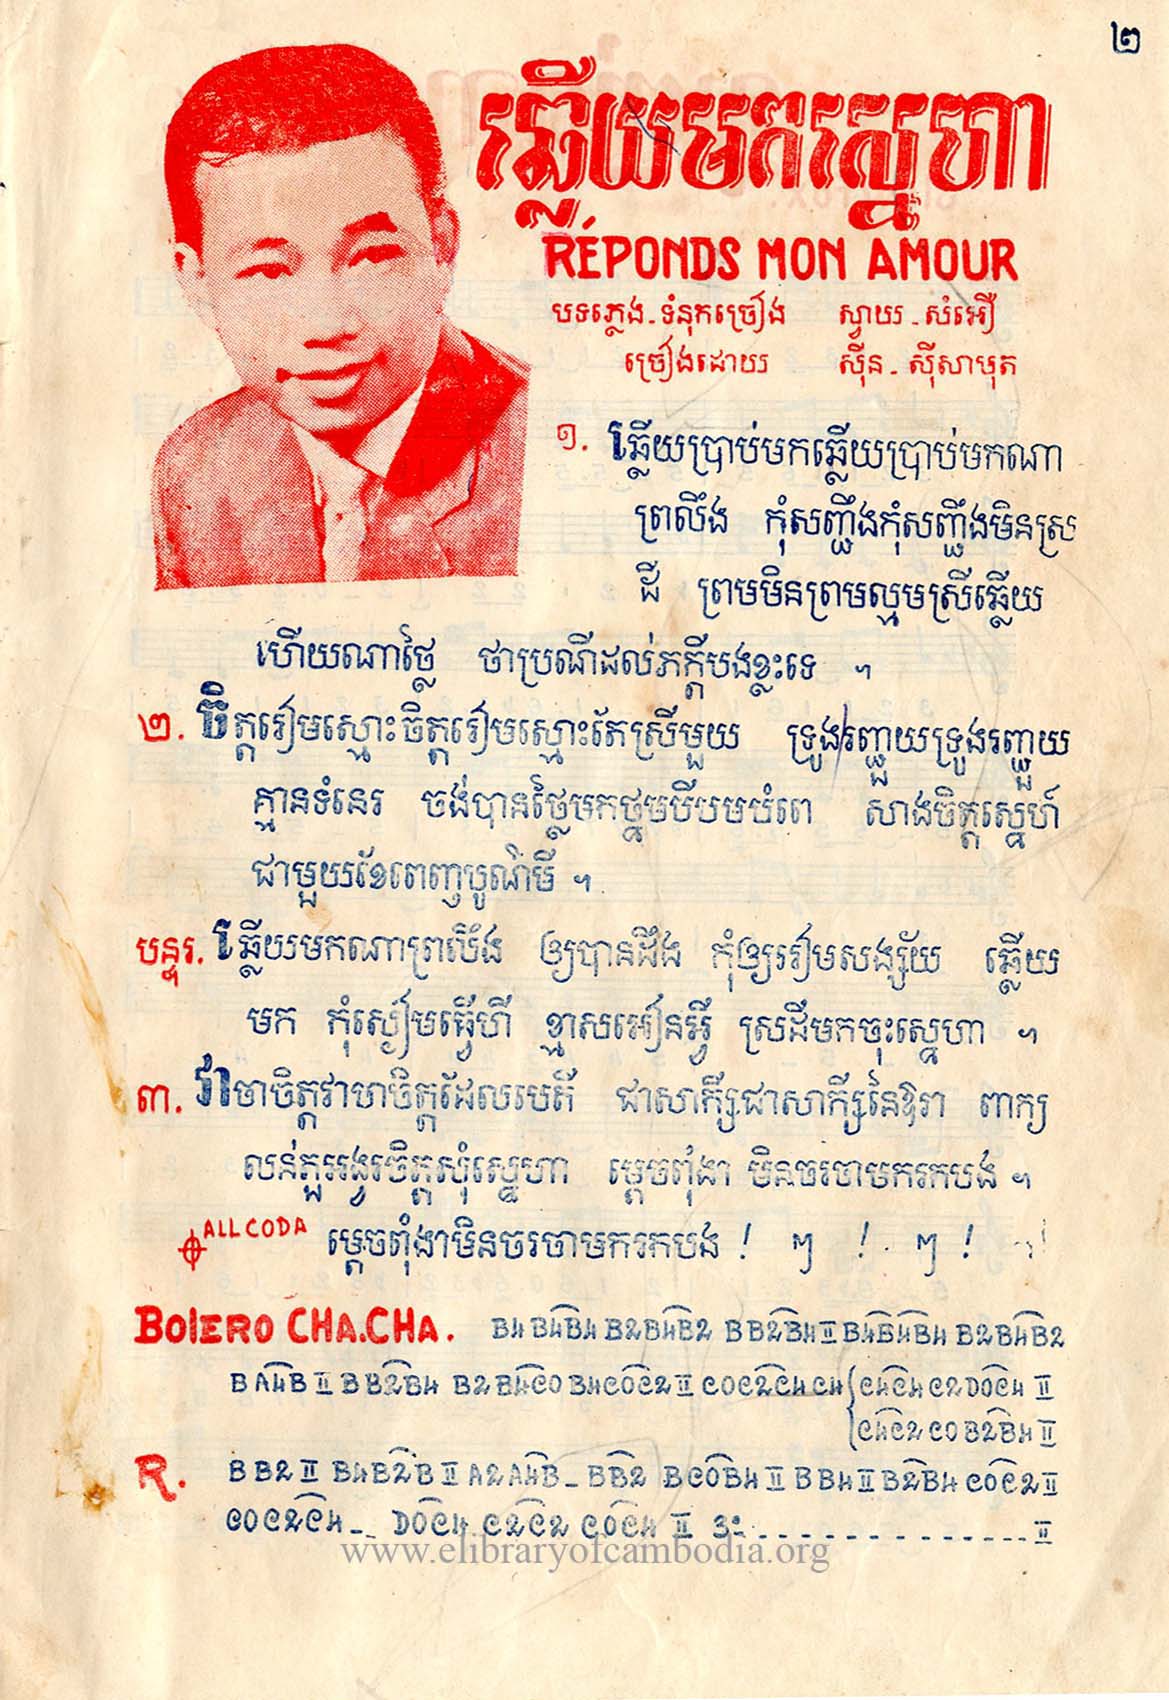 ២
ឆ្លើយមកស្នេហា
RÉPONDS MON AMOUR
បទភ្លេង - ទំនុកច្រៀង ស្វាយ - សំអឿ
ច្រៀងដោយ ស៊ីន - ស៊ីសាមុត
១. ឆ្លើយប្រាប់មកឆ្លើយប្រាប់មកណា
ព្រលឹង កុំសញ្ជឹងកុំសញ្ជឹងមិនស្រ
ដី ព្រមមិនព្រមល្មមស្រីឆ្លើយ
ហើយណាថ្លៃ ថាប្រណីដល់ភក្ដីបងខ្លះទេ ។
២. ចិត្តរៀមស្មោះចិត្តរៀមស្មោះតែស្រីមួយ ទ្រូងរញ្ជួយទ្រូងរញ្ជួយ
គ្មានទំនេរ ចង់បានថ្លៃមកថ្នមបីបមបំពេ សាងចិត្តស្នេហ៍
ជាមួយខែពេញបូណ៌មី ។
បន្ទរ. ឆ្លើយមកណាព្រលឹង ឲ្យបានដឹង កុំឲ្យរៀមសង្ស័យ ឆ្លើយ
មក កុំស្ងៀមធ្វើហី ខ្មាសអៀនអ្វី ស្រដីមកចុះស្នេហា ។
៣. វាចាចិត្តវាចាចិត្តដែលមេត្រី ជាសាក្សីជាសាក្សីនៃឱរា ពាក្យ
លន់តួអង្វរចិត្តសុំស្នេហា ម្ដេចពុំងាមិនចរចាមករកបង ។
ALL CODA ម្ដេចពុំងាមិនចរចាមករកបង ! ៗ ! ៗ !
BOlERO CHA.CHA. B4 B4B4 B2B4B2 B B2B4 II B4B4B4 B2B4B2
B A4B II B B2B4 B2 B4C0 B4C0C2 II C0C2C4 C4 C4C4 C2D0C4 II
C4C2 C0 B2B4 II
R. B B2 II B4B2B II A2 A4B - BB2 BC0B4 II B B4 II B2B4 C0C2 II
C0C2C4 -- D0C4 C2C2 C0C4 II 3: ------------ II
www.elibraryofcambodia.org